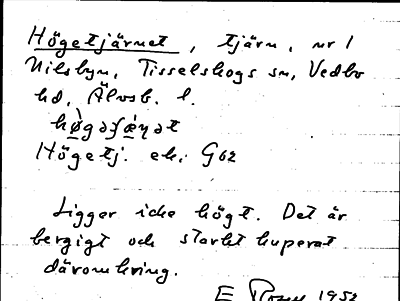 Högetjärnet, tjärn, nr 1
Nilsbyn, Tisselskogs sn, Vedbo
hd, Älvsb. l.
Högetj. ek. G62
Ligger icke högt. Det är
bergigt och starkt kuperat
däromkring.
E 1952